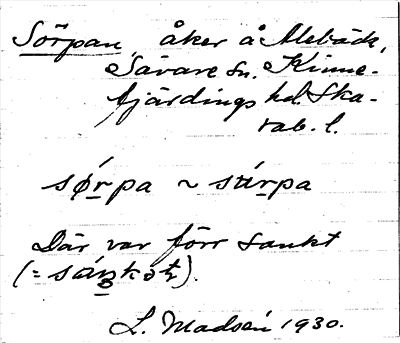 Sörpan, åker å Alebäck,
Sävare sn. Kinne-
fjärdings hd. Ska-
rab. l.
sǿr̲pa ~ stí̵r̲pa
Där var förr sankt
(= sáŋkət).
L. Madsén 1930.